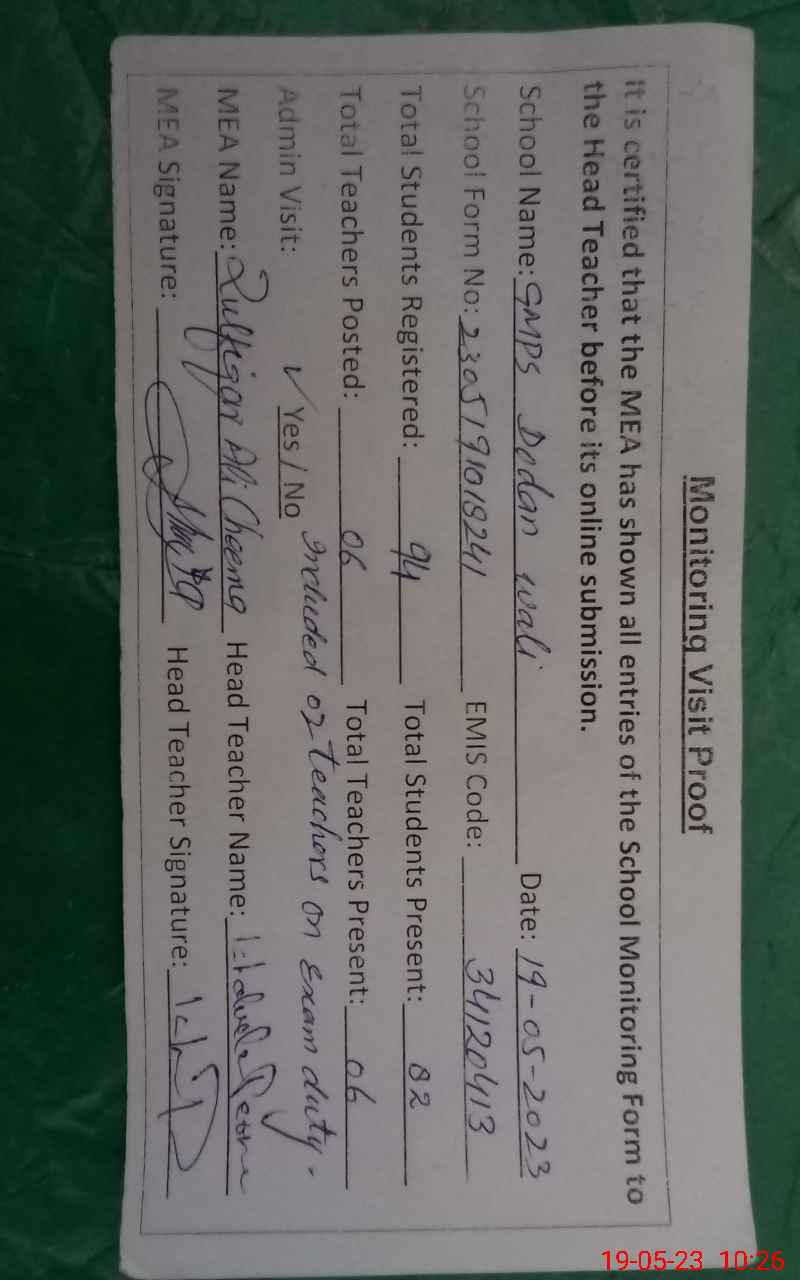 Monitoring Visit Proof
It is certified that the MEA has shown all entries of the School Monitoring Form to
the Head Teacher before its online submission.
School Name: GMPS Dodan wali Date: 19-05-2023
School Form No: 2305191018241 EMIS Code: 34120413
Total Students Registered: 94 Total Students Present: 82
Total Teachers Posted: 06 Total Teachers Present: 06
Admin Visit: ✓ Yes / No included 02 teachers on Exam duty.
MEA Name: Zulfiqar Ali Cheema Head Teacher Name:
MEA Signature: Head Teacher Signature:
19-05-23 10:26